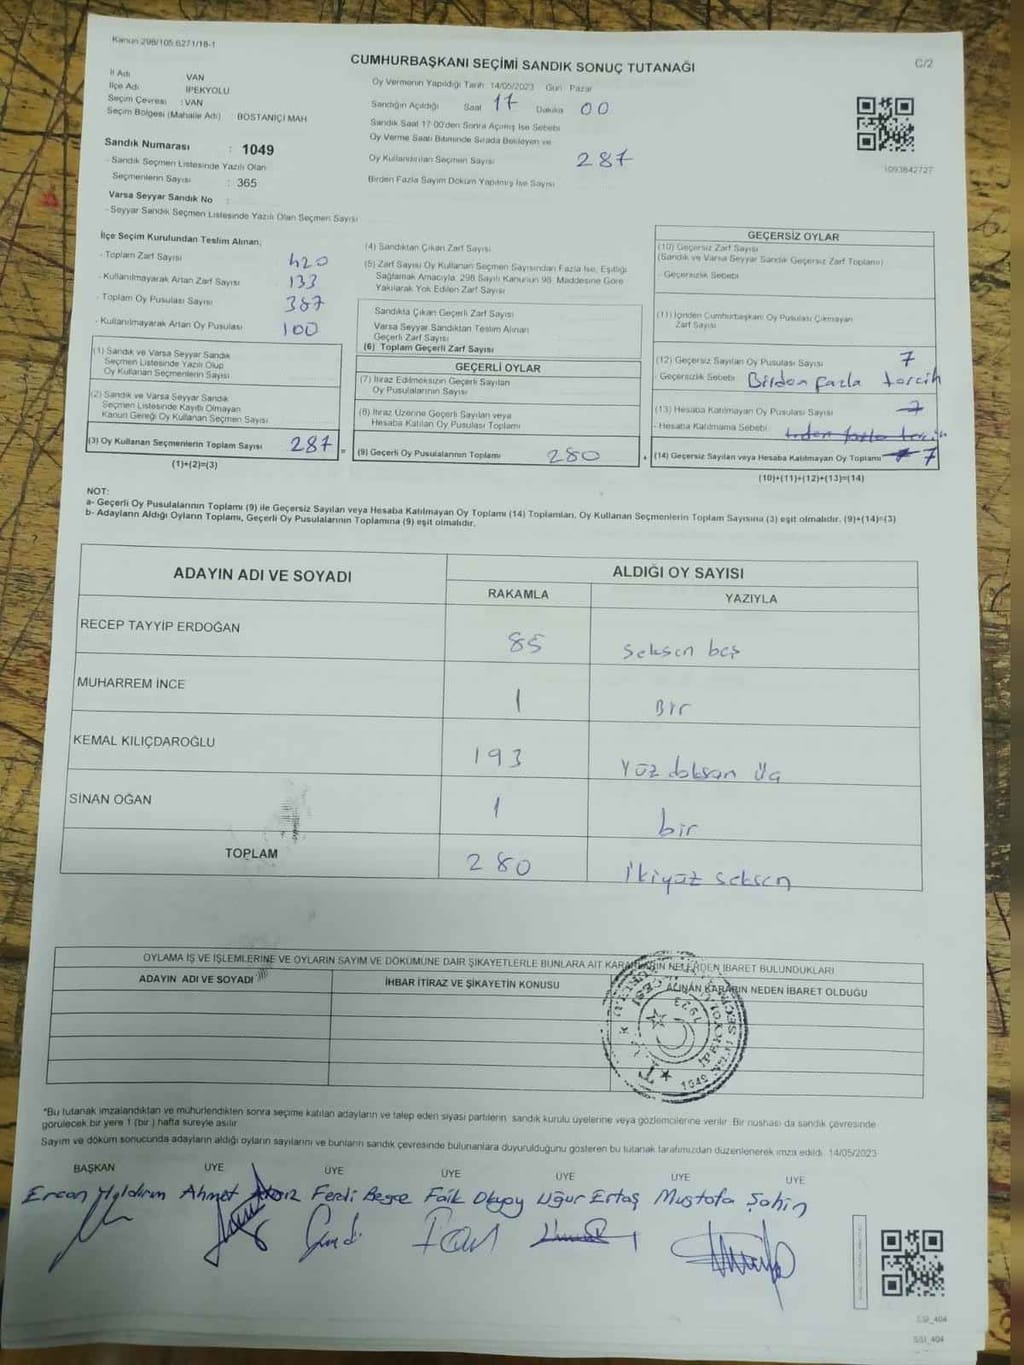 Kanun 298/105 6271/18-1
CUMHURBAŞKANI SEÇİMİ SANDIK SONUÇ TUTANAĞI
C/2
İl Adı VAN
İlçe Adı İPEKYOLU
Seçim Çevresi : VAN
Seçim Bölgesi (Mahalle Adı) BOSTANİÇİ MAH
Sandık Numarası : 1049
- Sandık Seçmen Listesinde Yazılı Olan
Seçmenlerin Sayısı : 365
Varsa Seyyar Sandık No
- Seyyar Sandık Seçmen Listesinde Yazılı Olan Seçmen Sayısı
Oy Vermenin Yapıldığı Tarih 14/05/2023 Gün Pazar
Sandığın Açıldığı Saat 17 Dakika 00
Sandık Saat 17:00'den Sonra Açılmış İse Sebebi
Oy Verme Saati Bitiminde Sırada Bekleyen ve
Oy Kullandırılan Seçmen Sayısı 287
Birden Fazla Sayım Döküm Yapılmış İse Sayısı
1093842727
İlçe Seçim Kurulundan Teslim Alınan;
- Toplam Zarf Sayısı 420
- Kullanılmayarak Artan Zarf Sayısı 133
- Toplam Oy Pusulası Sayısı 387
- Kullanılmayarak Artan Oy Pusulası 100
(1) Sandık ve Varsa Seyyar Sandık
Seçmen Listesinde Yazılı Olup
Oy Kullanan Seçmenlerin Sayısı
(2) Sandık ve Varsa Seyyar Sandık
Seçmen Listesinde Kayıtlı Olmayan
Kanun Gereği Oy Kullanan Seçmen Sayısı
(3) Oy Kullanan Seçmenlerin Toplam Sayısı 287 =
(1)+(2)=(3)
(4) Sandıktan Çıkan Zarf Sayısı
(5) Zarf Sayısı Oy Kullanan Seçmen Sayısından Fazla İse, Eşitliği
Sağlamak Amacıyla, 298 Sayılı Kanunun 98. Maddesine Göre
Yakılarak Yok Edilen Zarf Sayısı
Sandıkta Çıkan Geçerli Zarf Sayısı
Varsa Seyyar Sandıktan Teslim Alınan
Geçerli Zarf Sayısı
(6) Toplam Geçerli Zarf Sayısı
GEÇERLİ OYLAR
(7) İtiraz Edilmeksizin Geçerli Sayılan
Oy Pusulalarının Sayısı
(8) İtiraz Üzerine Geçerli Sayılan veya
Hesaba Katılan Oy Pusulası Toplamı
(9) Geçerli Oy Pusulalarının Toplamı 280 +
GEÇERSİZ OYLAR
(10) Geçersiz Zarf Sayısı
(Sandık ve Varsa Seyyar Sandık Geçersiz Zarf Toplamı)
- Geçersizlik Sebebi
(11) İçinden Cumhurbaşkanı Oy Pusulası Çıkmayan
Zarf Sayısı
(12) Geçersiz Sayılan Oy Pusulası Sayısı 7
- Geçersizlik Sebebi Birden fazla tercih
(13) Hesaba Katılmayan Oy Pusulası Sayısı 7
- Hesaba Katılmama Sebebi
(14) Geçersiz Sayılan veya Hesaba Katılmayan Oy Toplamı 7
(10)+(11)+(12)+(13)=(14)
NOT:
a- Geçerli Oy Pusulalarının Toplamı (9) ile Geçersiz Sayılan veya Hesaba Katılmayan Oy Toplamı (14) Toplamları, Oy Kullanan Seçmenlerin Toplam Sayısına (3) eşit olmalıdır. (9)+(14)=(3)
b- Adayların Aldığı Oyların Toplamı, Geçerli Oy Pusulalarının Toplamına (9) eşit olmalıdır.
ADAYIN ADI VE SOYADI
ALDIĞI OY SAYISI
RAKAMLA YAZIYLA
RECEP TAYYİP ERDOĞAN 85 Seksen beş
MUHARREM İNCE 1 Bir
KEMAL KILIÇDAROĞLU 193 Yüz doksan üç
SİNAN OĞAN 1 bir
TOPLAM 280 İkiyüz seksen
OYLAMA İŞ VE İŞLEMLERİNE VE OYLARIN SAYIM VE DÖKÜMÜNE DAİR ŞİKAYETLERLE BUNLARA AİT KARARLARIN NELERDEN İBARET BULUNDUKLARI
ADAYIN ADI VE SOYADI İHBAR İTİRAZ VE ŞİKAYETİN KONUSU ALINAN KARARIN NEDEN İBARET OLDUĞU
*Bu tutanak imzalandıktan ve mühürlendikten sonra seçime katılan adayların ve talep eden siyasi partilerin sandık kurulu üyelerine veya gözlemcilerine verilir. Bir nüshası da sandık çevresinde
görülecek bir yere 1 (bir) hafta süreyle asılır.
Sayım ve döküm sonucunda adayların aldığı oyların sayılarını ve bunların sandık çevresinde bulunanlara duyurulduğunu gösteren bu tutanak tarafımızdan düzenlenerek imza edildi. 14/05/2023
BAŞKAN ÜYE ÜYE ÜYE ÜYE ÜYE ÜYE
Ercan Yıldırım Ahmet Ferdi Faik Okyay Uğur Ertaş Mustafa Şahin
SSI_404
SSI_404